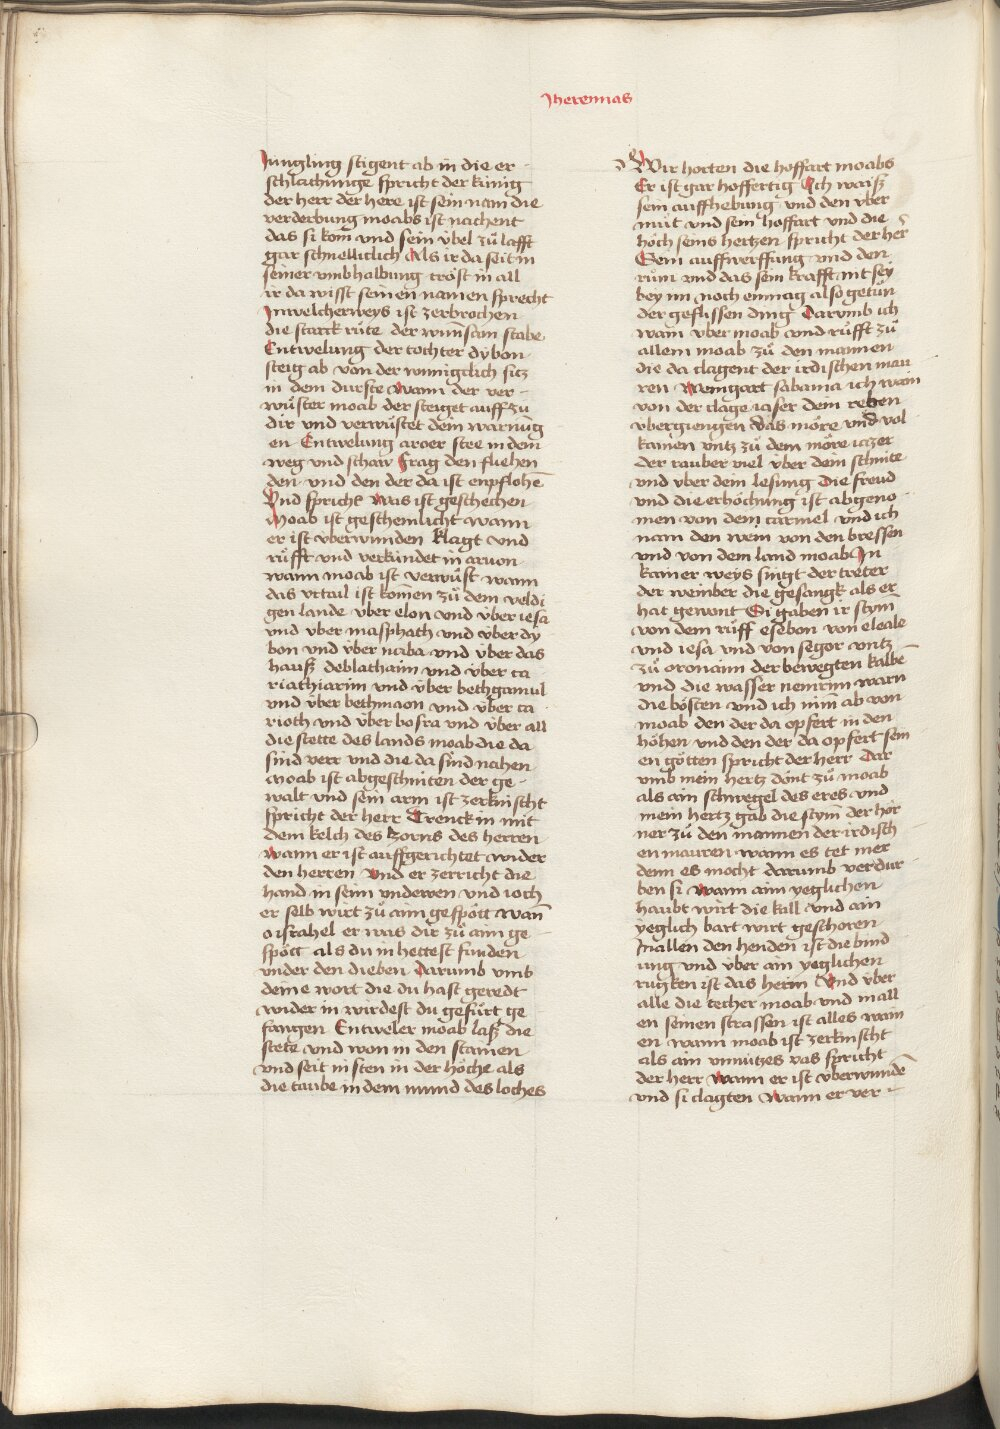 Jheremias
Jungling stigent ab in die er-
schlachunge spricht der künig
der herr der here ist sein nam die
verderbung moabs ist nachent
das si kom und sein übel zů lafft
gar schnelliclich Als ir da seit in
seiner umbhalbung tröst in all
ir da wisst seinen namen sprecht
In welcherweys ist zerbrochen
die starck růte der wunsam stabe
Entwelung der tochter dybon
steig ab von der wunigclich sitz
in dem durste Wann der ver-
wůster moab der steiget auff zu
dir und verwůstet dein warnūg
en Entwelung aroer stee in dem
weg und schaw frag den fliehen
den und den der da ist enpflohē
Und sprich Was ist geschechen
Moab ist geschemlicht wann
er ist überwunden klagt und
růfft und verkündet in arnon
wann moab ist verwůst wann
das urtail ist komen zů dem veldi
gen lande über elon und über iesa
und über masphath und über dy
bon und über naba und über das
hauß deblathaim und über ca
riathiarim und über bethgamul
und über bethmaon und über ca
rioth und über bosra und über all
die stette des lands moab die da
sind verr und die da sind nahen
Moab ist abgeschniten der ge-
walt und sein arm ist zerknischt
spricht der herr Trenck in mit
dem kelch des zorns des herren
Wann er ist auffgerichtet wider
den herren Und er zerricht die
hand in seim underwen und ioch
er selb wirt zů aim gespött Wañ
o israhel er was dir zů aim ge-
spött als du in hettest funden
under den dieben Darumb umb
deine wort die du hast geredt
wider in wirdest du gefůrt ge
fangen Entweler moab laß die
stete und won in den stainen
und seit in sten in der höche als
die taube in dem mund des loches
Wir horten die hoffart moabs
Er ist gar hoffertig Ich waiß
sein auffhebung und den über
můt und sein hoffart und die
höch seins hertzen spricht der her̄
Sein auffwerffung und den
rům und das sein krafft nit sey
bey im noch enmag also getůn
der geflissen ding Darumb ich
wain über moab und růfft zů
allem moab zů den mannen
die da clagent der irdischen mau
ren Weingart sabama ich wain
von der clage iaser dein reben
übergiengen das möre und vol
kamen untz zů dem möre iazer
der rauber viel über dein schnite
und über dein lesung die freud
und die erhöchung ist abgeno
men von dem carmel und ich
nam den wein von den bressen
und von dem land moab In
kainer weys singt der treter
der weinber die gesangk als er
hat gewont Si gaben ir stym̄
von dem růff esebon von eleale
und iesa und von segor untz
zů oronaim der bewegten kalbē
und die wasser nemrim warn
die bösten und ich nim ab von
moab den der da opfert in den
höhen und den der da opfert sein
en götten spricht der herr Dar
umb mein hertz dönt zů moab
als ain schwegel des eres und
mein hertz gab die stym der hör
ner zů den mannen der irdisch
en mauren wann es tet mer
denn es mocht darumb verdur
ben si Wann aim yeglichen
haubt wirt die kall und ain
yeglich bart wirt geschoren
In allen den henden ist die bind
ung und über ain yeglichen
rugken ist das herin Und über
alle die techer moab und in all
en seinen strassen ist alles wain
en wann moab ist zerknischt
als ain unnützes vas spricht
der herr Wann er ist überwundē
und si clagten Wann er ver-